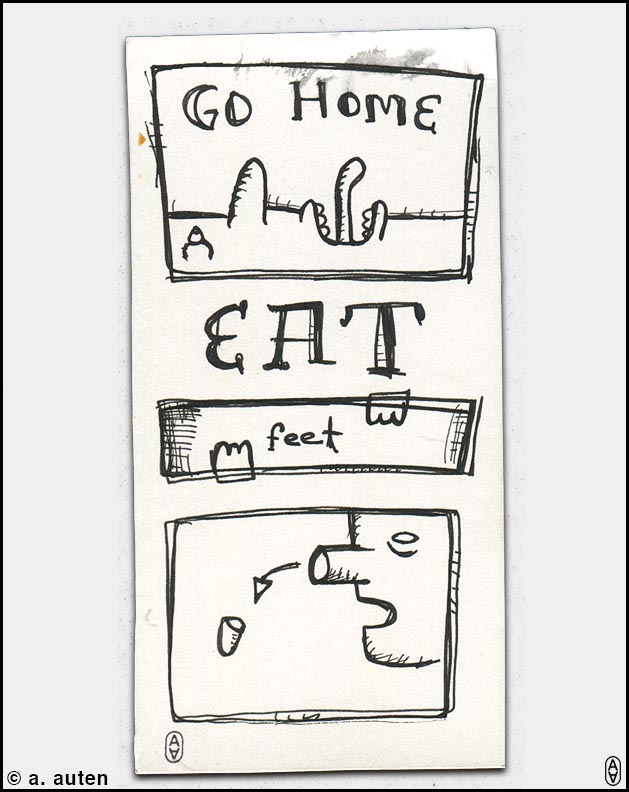 GO HOME
EAT
feet
© a. auten